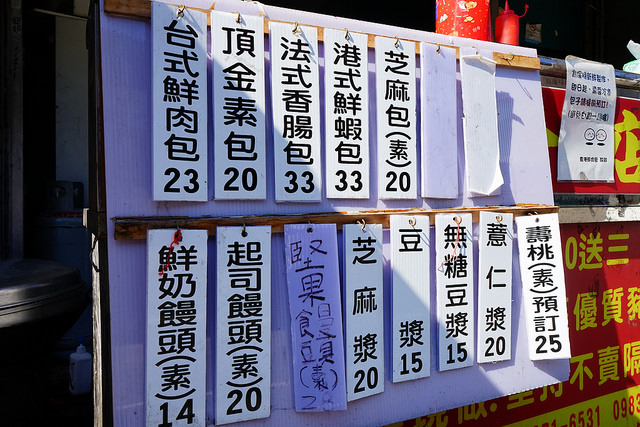 台式鮮肉包23
頂金素包20
法式香腸包33
港式鮮蝦包33
芝麻包(素)20
鮮奶饅頭(素)14
起司饅頭(素)20
堅果饅頭(素)2
芝麻漿20
豆漿15
無糖豆漿15
薏仁漿20
壽桃(素)預訂25
店
0送三
優質豬
不賣隔
1-6531 098